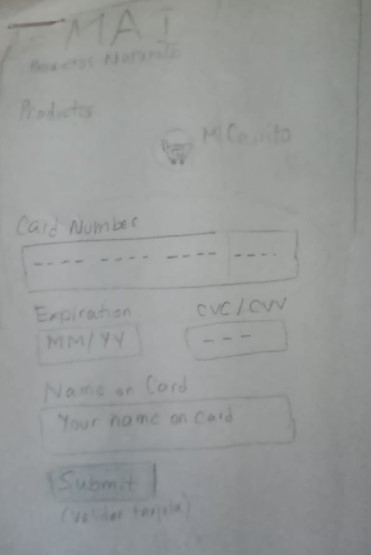 MAI
Productos
Mi Carrito
Card Number
---- ---- ---- ----
Expiration CVC/CVV
MM/YY ---
Name on Card
Your name on card
Submit
(Validar tarjeta)